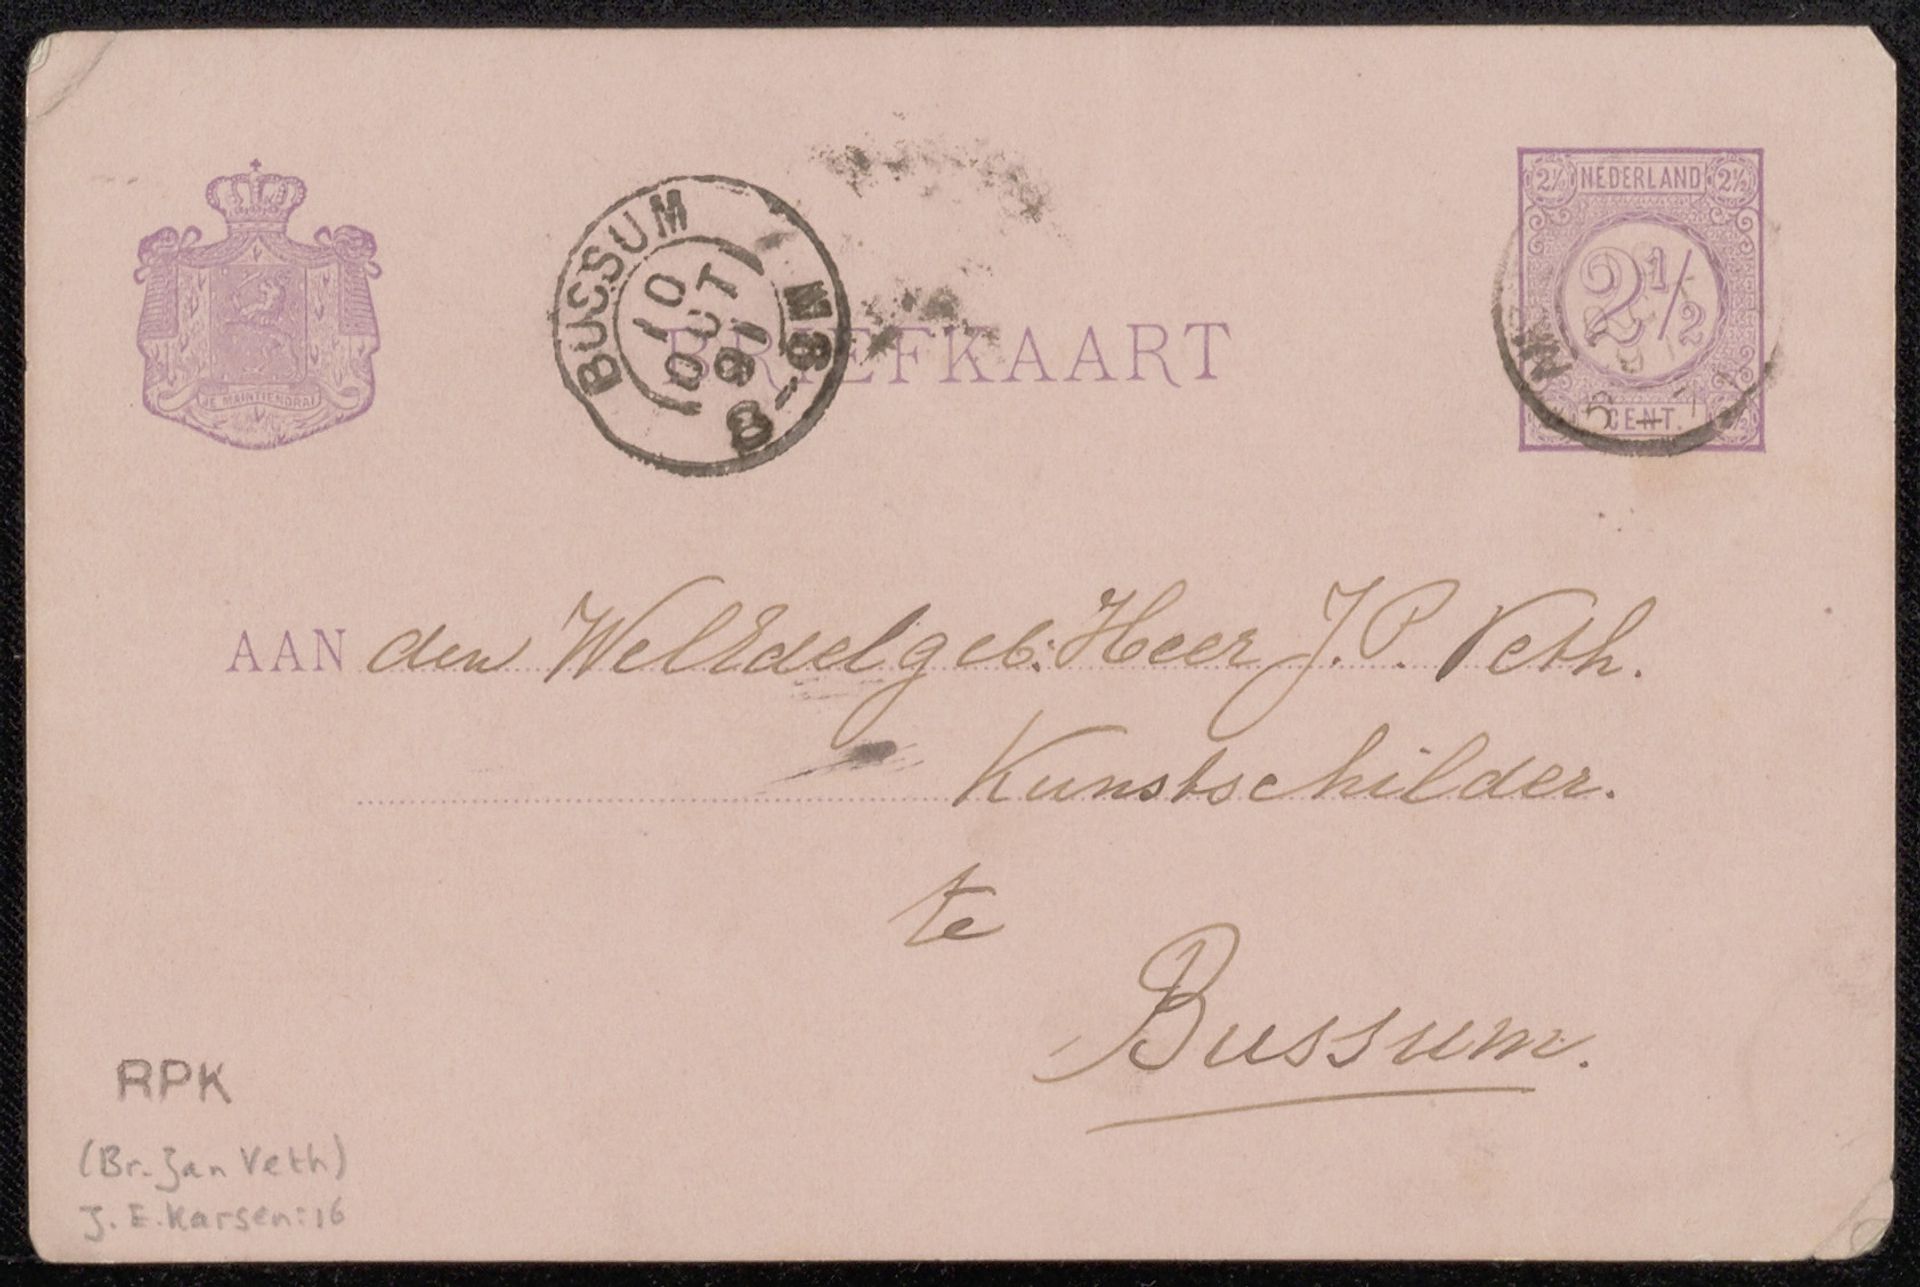 JE MAINTIENDRAI
BUSSUM
10
OCT
91
8-8M
BRIEFKAART
2½ NEDERLAND 2½
2½
CENT.
AAN den WelEdelgeb: Heer J.P. Veth.
Kunstschilder.
te
Bussum.
RPK
(Br. Jan Veth)
J. E. Karsen: 16